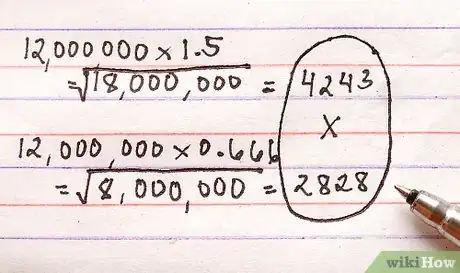 12,000000 x 1.5
= √18,000,000 = 4243
X
12,000,000 x 0.666
= √8,000,000 = 2828
wikiHow